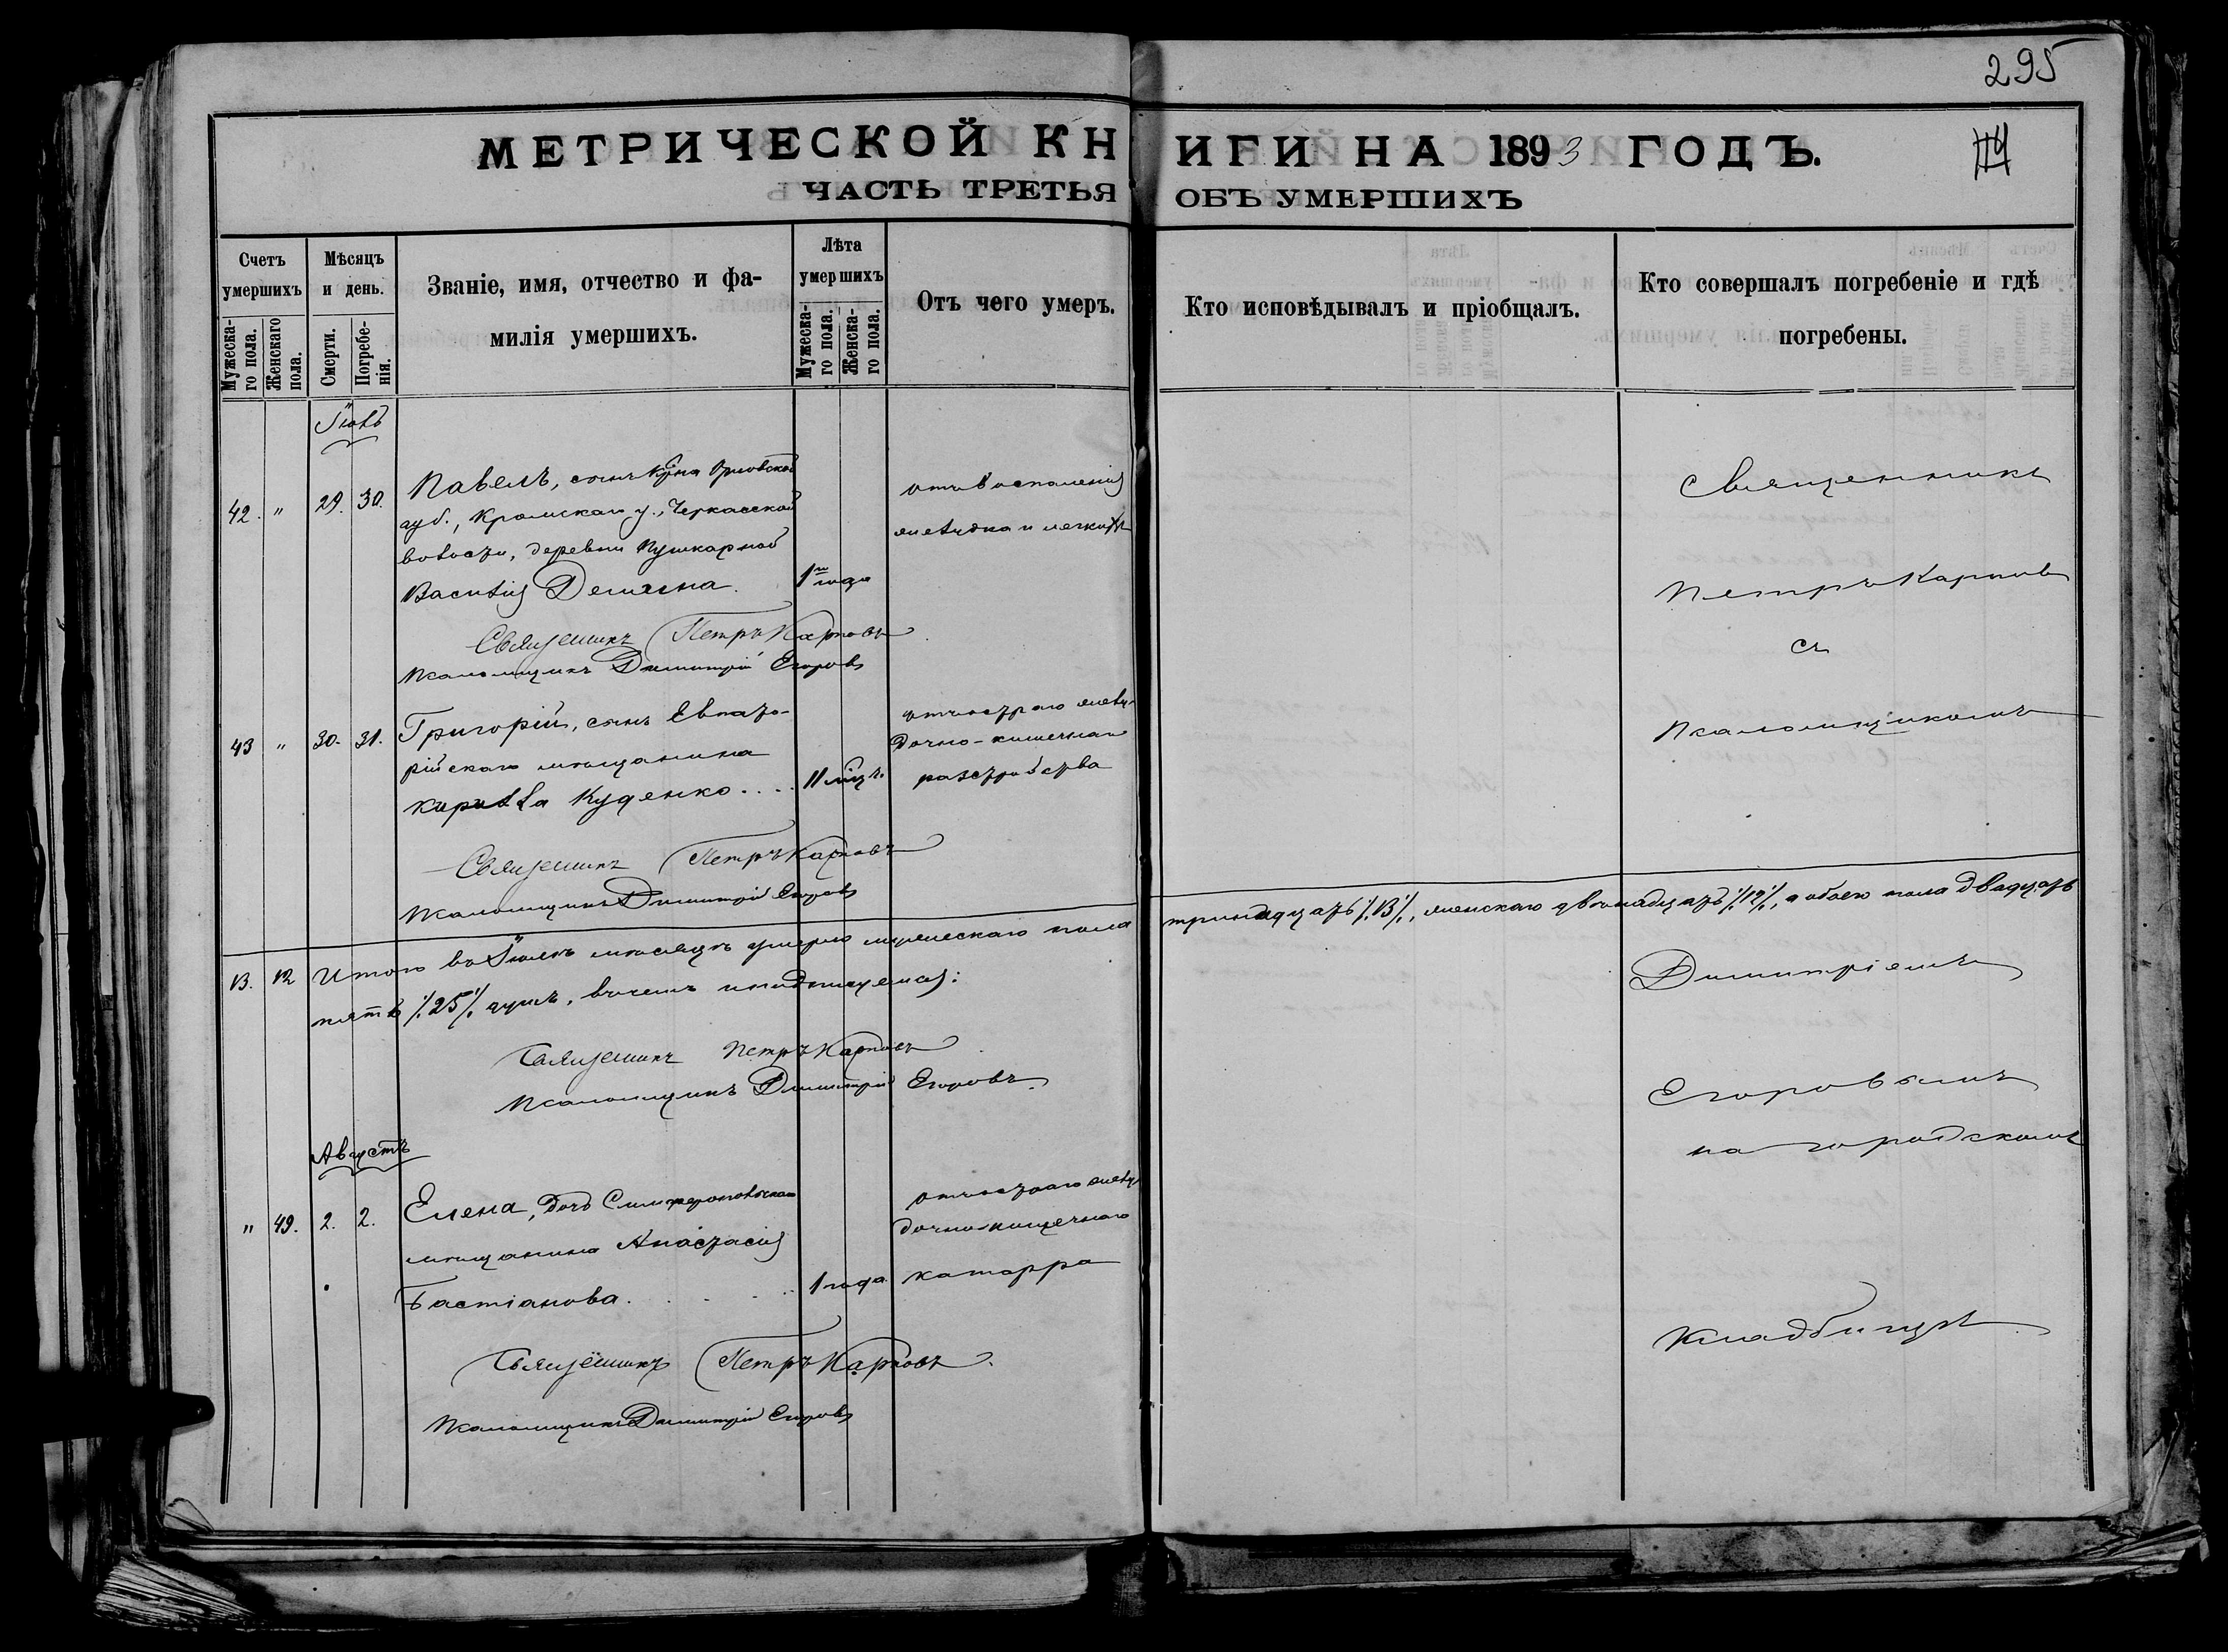 295
МЕТРИЧЕСКОЙ КНИГИ НА 1893 ГОДЪ.
ЧАСТЬ ТРЕТЬЯ ОБЪ УМЕРШИХЪ
Счетъ умершихъ
Мужеска-
го пола.
Женскаго
пола.
Мѣсяцъ
и день.
Смерти.
Погребе-
нія.
Званіе, имя, отчество и фа-
милія умершихъ.
Лѣта
умершихъ
Мужеска-
го пола.
Женска-
го пола.
Отъ чего умеръ.
Кто исповѣдывалъ и пріобщалъ.
Кто совершалъ погребеніе и гдѣ
погребены.
Іюль
42. " 29. 30.
Павелъ, сынъ кр-на Орловской
губ., Кромскаго у., Черкасской
волости, деревни Пушкарной
Василія 1 года
отъ воспаленія
желудка и легкихъ
Священникъ Петръ Карповъ
Псаломщикъ Димитрій Егоровъ
43 " 30. 31.
Григорій, сынъ Евпато-
рійскаго мѣщанина
Кирилла Куценко.... 11 мѣц.
отъ остраго желу-
дочно-кишечнаго
разстройства
Священникъ Петръ Карповъ
Псаломщикъ Димитрій Егоровъ
13. 12 Итого въ Іюлѣ мѣсяцѣ умерло мужескаго пола тринадцать /13/, женскаго двѣнадцать /12/, а обоего пола двадцать
пять /25/ душъ, въ чемъ и подписуемся:
Священникъ Петръ Карповъ
Псаломщикъ Димитрій Егоровъ.
Августъ
" 49. 2. 2.
Елена, дочь Симферопольскаго
мѣщанина Анастасія
Бастіанова. 1 года
отъ остраго желу-
дочно-кишечнаго
катарра
Священникъ Петръ Карповъ.
Псаломщикъ Димитрій Егоровъ
Священникъ
Петръ Карповъ
съ
Псаломщикомъ
Димитріемъ
Егоровымъ
на городскомъ
кладбищѣ.